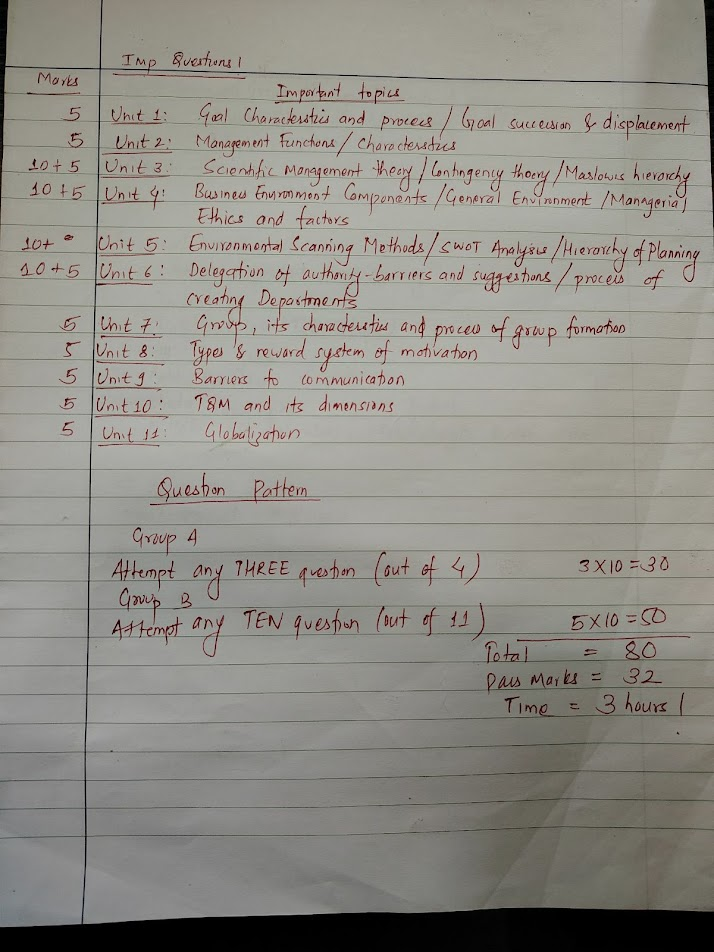 Imp Questions!
Marks
Important topics
5 Unit 1: Goal Characteristics and process / Goal succession & displacement
5 Unit 2: Management Functions / Characteristics
10+5 Unit 3: Scientific Management theory / Contingency theory / Maslow's hierarchy
10+5 Unit 4: Business Environment Components / General Environment / Managerial
Ethics and factors
10+ Unit 5: Environmental Scanning Methods / SWOT Analysis / Hierarchy of Planning
10+5 Unit 6: Delegation of authority-barriers and suggestions / process of
creating Departments
5 Unit 7: Group, its characteristics and process of group formation
5 Unit 8: Types & reward system of motivation
5 Unit 9: Barriers to communication
5 Unit 10: TQM and its dimensions
5 Unit 11: Globalization
Question Pattern
Group A
Attempt any THREE question (out of 4) 3×10=30
Group B
Attempt any TEN question (out of 11) 5×10=50
Total = 80
Pass Marks = 32
Time = 3 hours